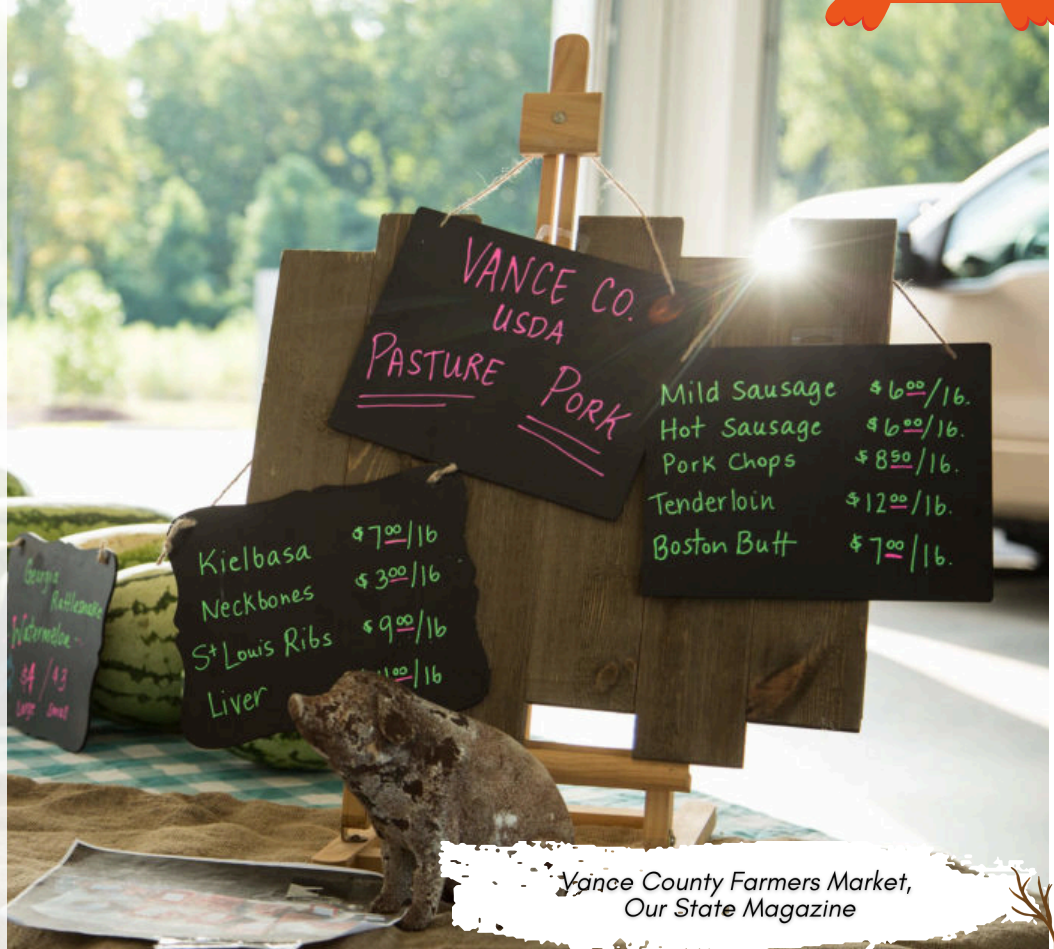 VANCE CO.
USDA
PASTURE PORK
Mild Sausage $6.00/lb.
Hot Sausage $6.00/lb.
Pork Chops $8.50/lb.
Tenderloin $12.00/lb.
Boston Butt $7.00/lb.
Kielbasa $7.00/lb
Neckbones $3.00/lb
St Louis Ribs $9.00/lb
Liver 00/lb
Georgia
Rattlesnake
Watermelon
$4 / $3
Large Small
Vance County Farmers Market,
Our State Magazine